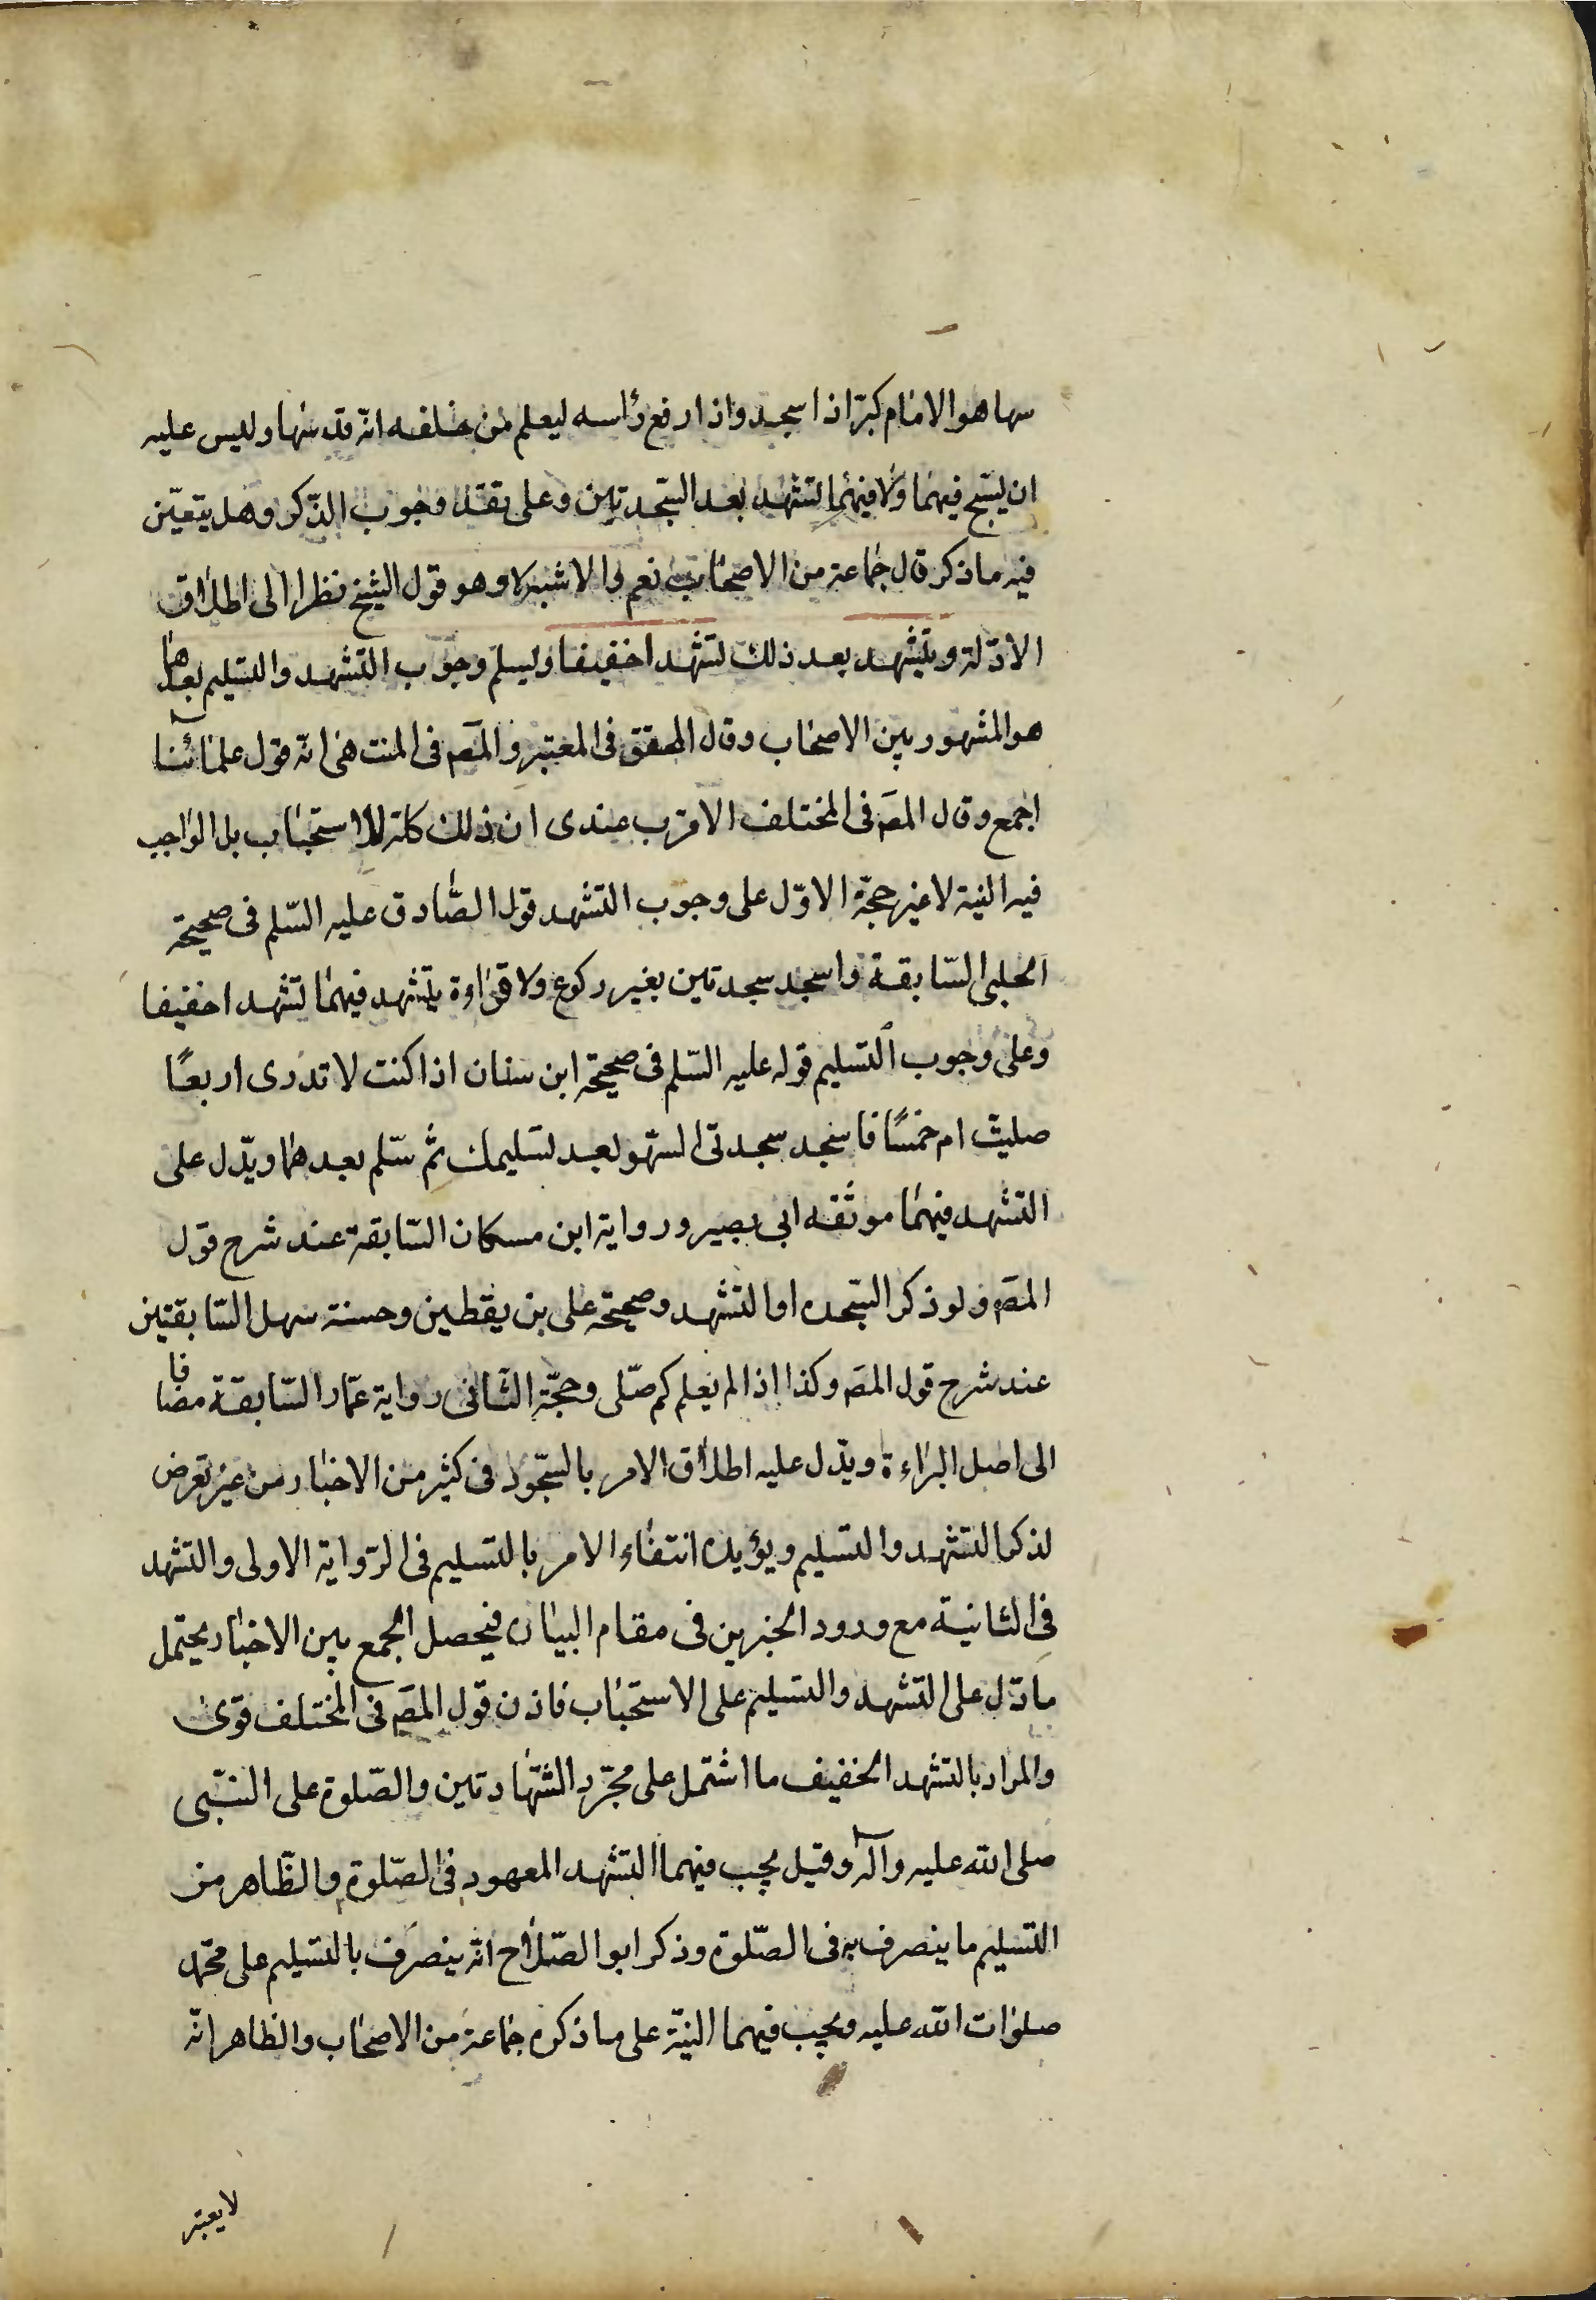 سها هو الامام كبّر اذا سجد واذا رفع رأسه ليعلم من خلفه انّه قد سها وليس عليه
ان يسبّح فيهما ولا فيهما تشهد بعد السّجدتين وعلى تقدير وجوب الذّكر وهل يتعيّن
فيه ما ذكر قال جماعة من الاصحاب نعم والاشبه لا وهو قول الشيخ نظرا الى اطلاق
الادّلة ويتشهد بعد ذلك تشهدا خفيفا ويسلم وجوب التشهد والتسليم بعدهما
هو المشهور بين الاصحاب وقال المحقق فى المعتبر والمصَ فى المنتهى انه قول علمائنا
اجمع وقال المصَ فى المختلف الاقرب عندى ان ذلك كلّه للاستحباب بل الواجب
فيه النية لا غير حجّة الاوّل على وجوب التشهد قول الصّادق عليه السّلم فى صحيحة
الحلبى السّابقة واسجد سجدتين بغير ركوع ولا قراءة يتشهد فيهما تشهدا خفيفا
وعلى وجوب التسليم قوله عليه السّلم فى صحيحة ابن سنان اذا كنت لا تدرى اربعًا
صليت ام خمسًا فاسجد سجدتى السّهو بعد تسليمك ثمّ سّلم بعدهما ويدّل على
التشهد فيهما موثقه ابى بصير ورواية ابن مسكان السّابقة عند شرح قول
المصَ ولو ذكر السّجده او التشهد وصحيحة على بن يقطين وحسنة سهل السّابقتين
عند شرح قول المصَ وكذا اذا لم يعلم كم صّلى وحجّة الثّانى رواية عمّار السّابقة مضافا
الى اصل البراءة ويدّل عليه اطلاق الامر بالسّجود فى كثير من الاخبار من غير تعرض
لذكر التشهد والتسليم ويؤيده انتفاء الامر بالتسليم فى الرّواية الاولى والتشهد
فى الثانية مع ورود الخبرين فى مقام البيان فيحصل الجمع بين الاخبار يحتمل
ما دّل على التشهد والتسليم على الاستحباب فاذن قول المصَ فى المختلف قوى
والمراد بالتشهد الخفيف ما اشتمل على مجرّد الشّهادتين والصّلوة على النّبى
صلى الله عليه وآله وقيل يجب فيهما التشهد المعهود فى الصّلوة والظّاهر من
التسليم ما ينصرف به فى الصّلوة وذكر ابو الصّلاح انّه ينصرف بالتسليم على محمّد
صلوات الله عليه ويجب فيهما النيّة على ما ذكره جماعة من الاصحاب والظاهر انّه
لا يعتبر